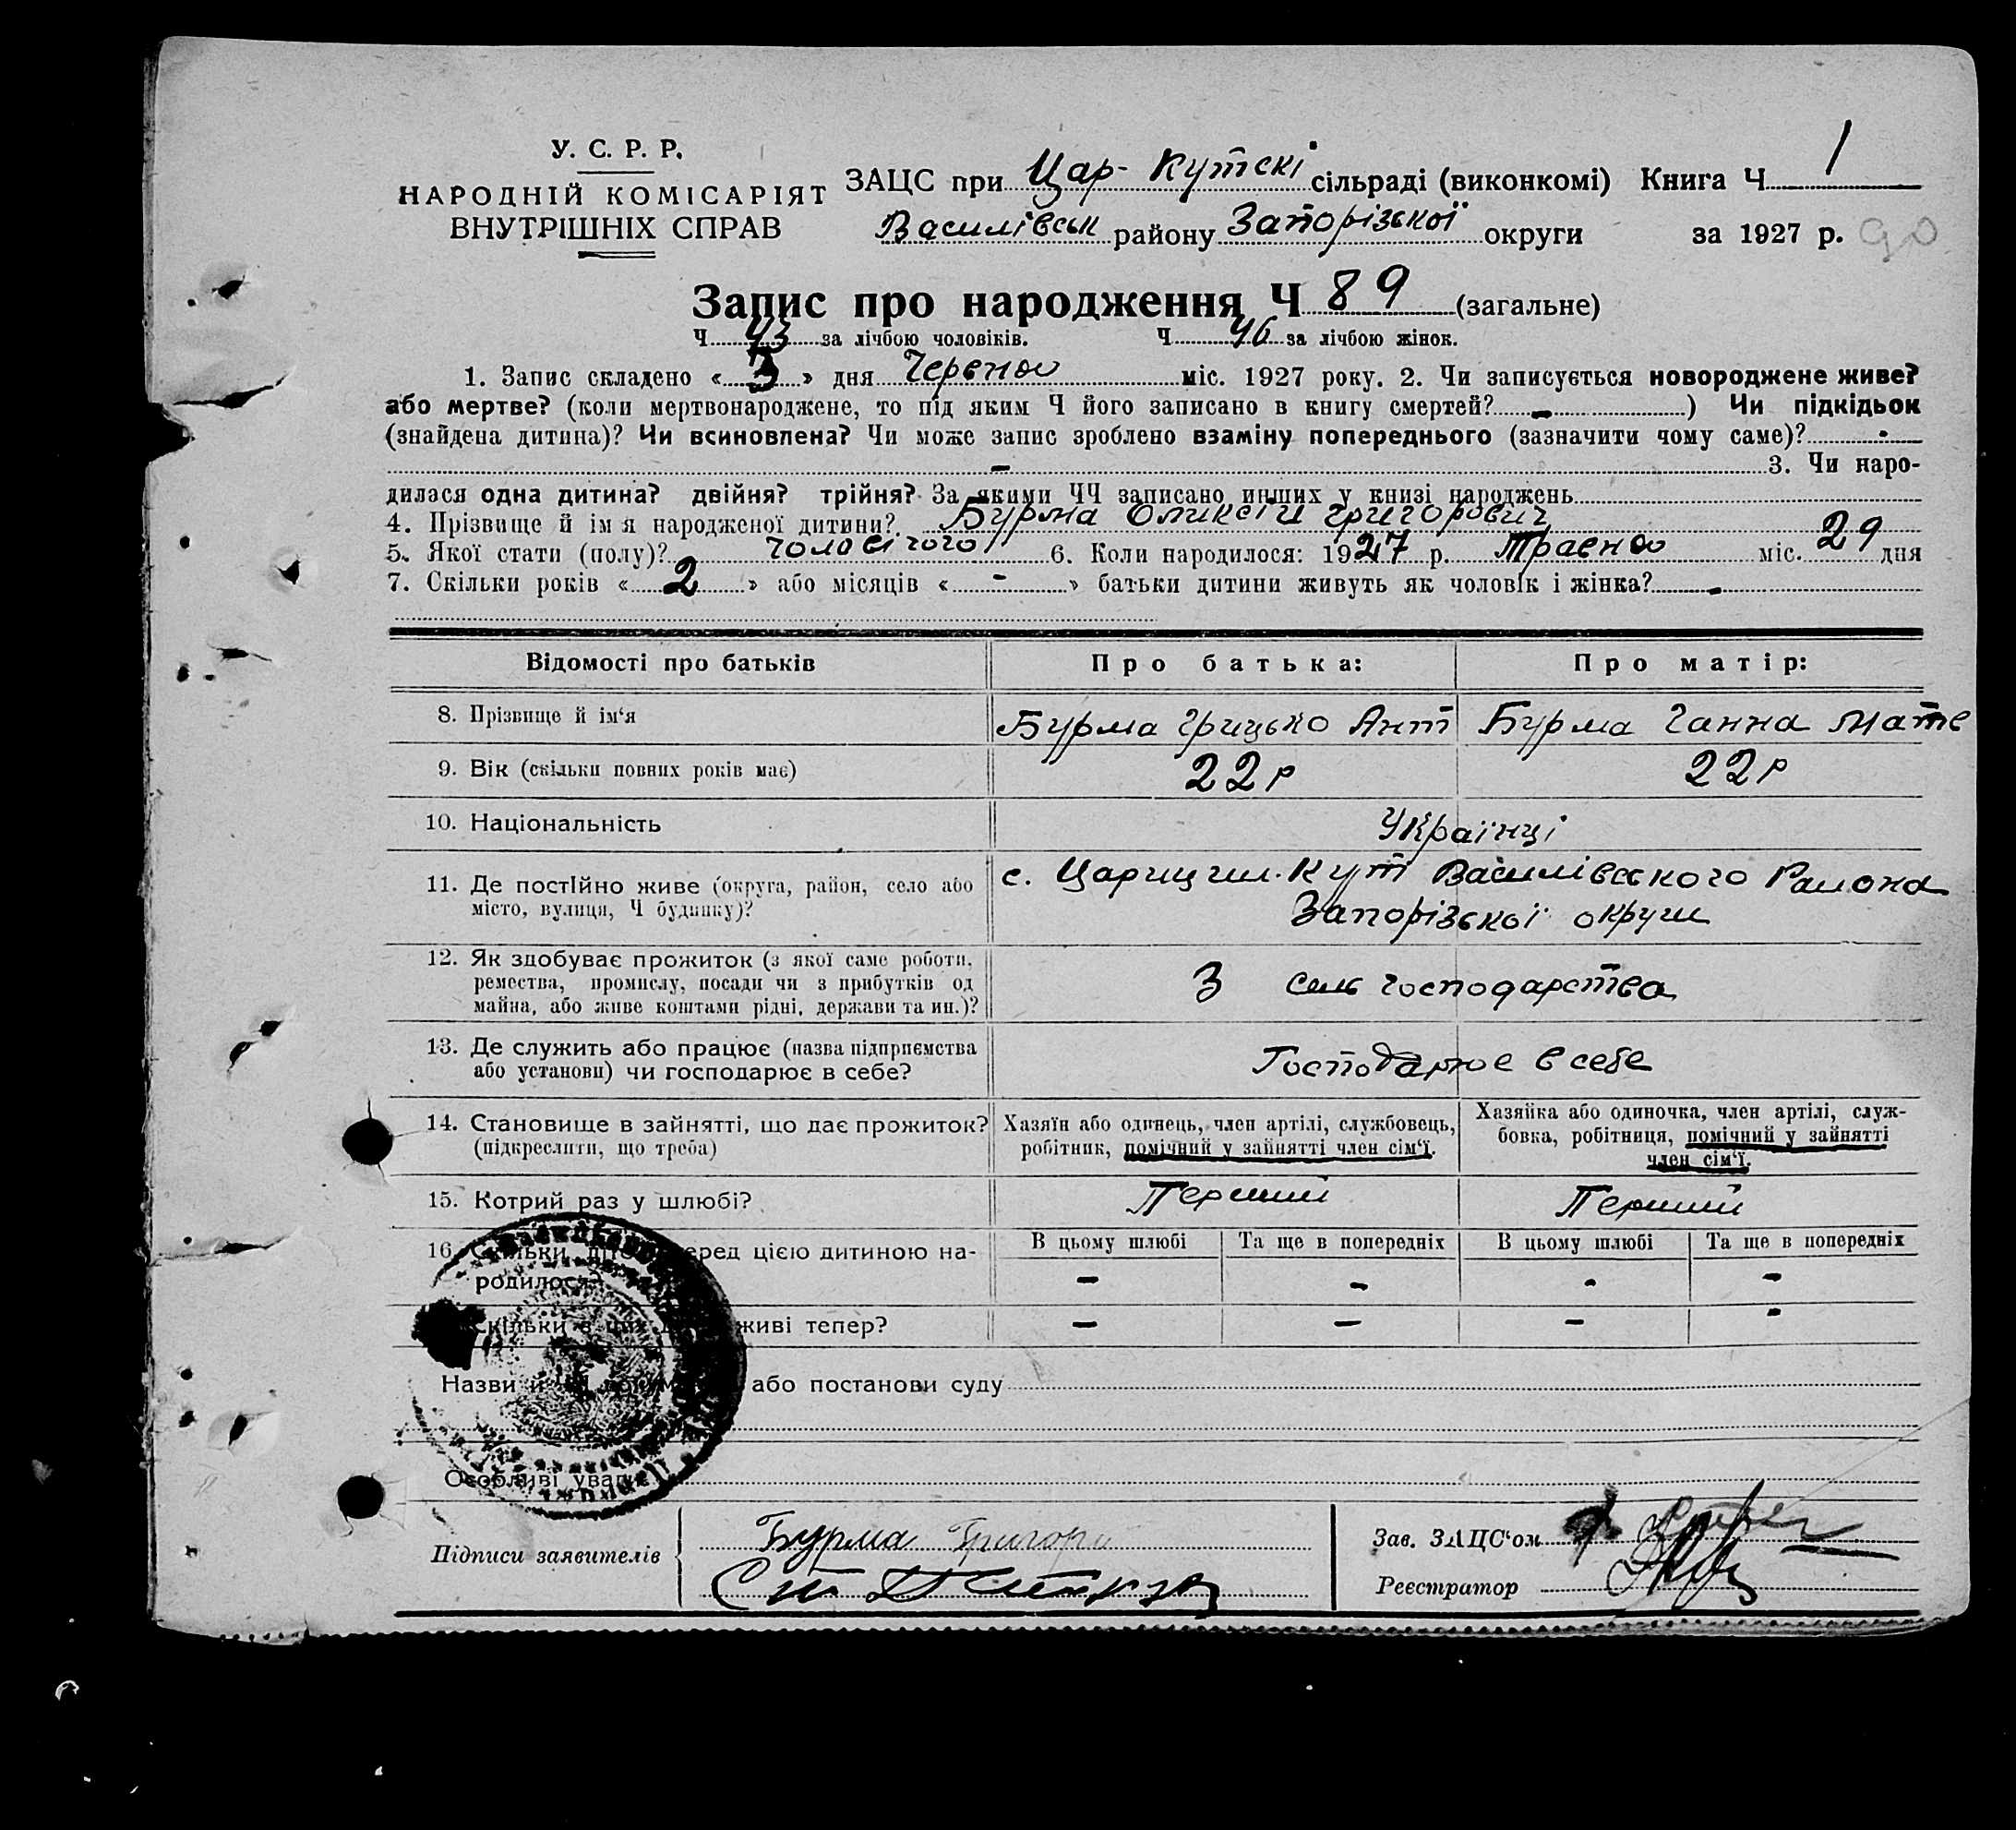 У. С. Р. Р.
НАРОДНІЙ КОМІСАРІЯТ
ВНУТРІШНІХ СПРАВ
ЗАЦС при Цар-Кутскі сільраді (виконкомі) Книга Ч 1
Василівськ району Запорізької округи за 1927 р. 90
Запис про народження Ч 89 (загальне)
Ч 43 за лічбою чоловіків. Ч 46 за лічбою жінок.
1. Запис складено « 3 » дня Червня міс. 1927 року. 2. Чи записується новороджене живе?
або мертве? (коли мертвонароджене, то під яким Ч його записано в книгу смертей? - ) Чи підкідьок
(знайдена дитина)? Чи всиновлена? Чи може запис зроблено взаміну попереднього (зазначити чому саме)? -
- 3. Чи наро-
дилася одна дитина? двійня? трійня? За якими ЧЧ записано инших у книзі народжень
4. Прізвище й ім'я народженої дитини? Бурма Оликсій Григорович
5. Якої стати (полу)? чоловічого 6. Коли народилося: 1927 р. Травня міс. 29 дня
7. Скільки років « 2 » або місяців « - » батьки дитини живуть як чоловік і жінка? -
Відомості про батьків Про батька: Про матір:
8. Прізвище й ім'я Бурма Грицько Ант Бурма Ганна Мате
9. Вік (скільки повних років має) 22 р 22 р
10. Національність Українці
11. Де постійно живе (округа, район, село або місто, вулиця, Ч будинку)? с. Царицин. Кут Василівського Района
Запорізької округи
12. Як здобуває прожиток (з якої саме роботи,
ремества, промислу, посади чи з прибутків од
майна, або живе коштами рідні, держави та ин.)? З сель господарства
13. Де служить або працює (назва підприємства
або установи) чи господарює в себе? Господарює в себе
14. Становище в зайнятті, що дає прожиток?
(підкреслити, що треба)
Хазяїн або одинець, член артілі, службовець,
робітник, помічний у зайнятті член сім'ї.
Хазяйка або одиночка, член артілі, служ-
бовка, робітниця, помічний у зайнятті
член сім'ї.
15. Котрий раз у шлюбі? Перший Перший
16. Скільки дітей перед цією дитиною на-
родилося?
В цьому шлюбі Та ще в попередніх В цьому шлюбі Та ще в попередніх
- - - -
Скільки з них живі тепер? - - - -
Назви й або постанови суду
Особливі уваги
Підписи заявителів Бурма Григори
Зав. ЗАЦС'ом
Реєстратор